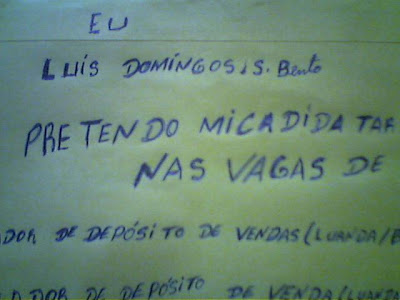 EU
LUÍS DOMÍNGOS S. Bento
PRETENDO MICADIDATAR
NAS VAGAS DE
ADOR DE DEPÓSITO DE VENDAS (LUANDA/B
ADOR DE DEPÓSITO DE VENDA (LUANDA